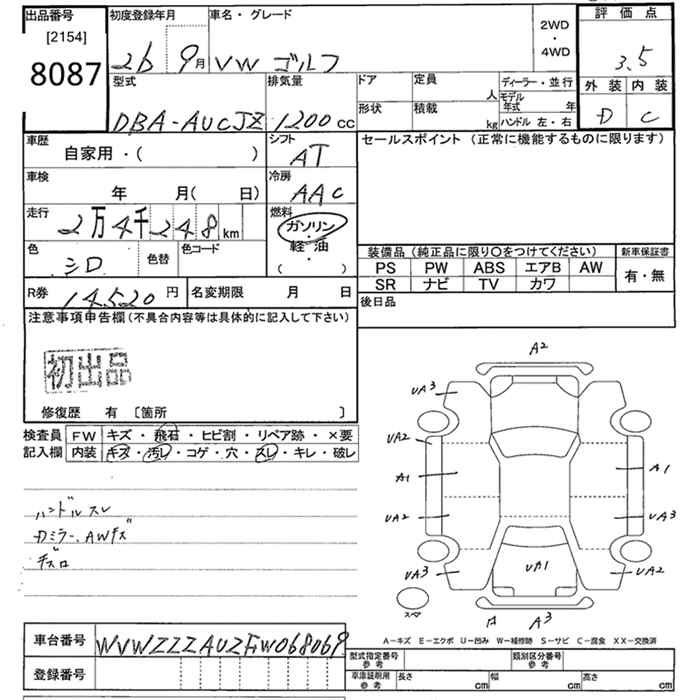 出品番号
[2154]
8087
初度登録年月
26 9月
車名・グレード
VW ゴルフ
2WD
・
4WD
評価点
3.5
外装 内装
D C
型式
DBA-AUCJZ
排気量
1200 CC
ドア
定員
人
形状
積載
kg
ディーラー・並行
モデル年式 年
ハンドル 左・右
車歴
自家用・( )
シフト
AT
車検
年 月( 日)
冷房
AAC
走行
2万4千248km
燃料
ガソリン
・
軽・油
( ・ )
色
シロ
色替
色コード
R券
14,520円
名変期限 月 日
セールスポイント (正常に機能するものに限ります)
装備品(純正品に限り〇をつけてください)
PS PW ABS エアB AW
SR ナビ TV カワ
新車保証書
有・無
後日品
注意事項申告欄(不具合内容等は具体的に記入して下さい)
初出品
修復歴 有〔箇所 〕
検査員記入欄
FW キズ・飛石・ヒビ割・リペア跡・×要
内装 キズ・汚レ・コゲ・穴・スレ・キレ・破レ
ハンドルスレ
Dミラー、AWキズ
A2
UA3
UA2
A1
A1
UA2
UA3
UA3
UA1
UA2
スペア
A3
A-キズ E-エクボ U-凹み W-補修跡 S-サビ C-腐食 XX-交換済
車台番号
WVWZZZAUZFW068069
登録番号
型式指定番号
参考
類別区分番号
参考
車庫証明用
参考
長さ cm
幅 cm
高さ cm